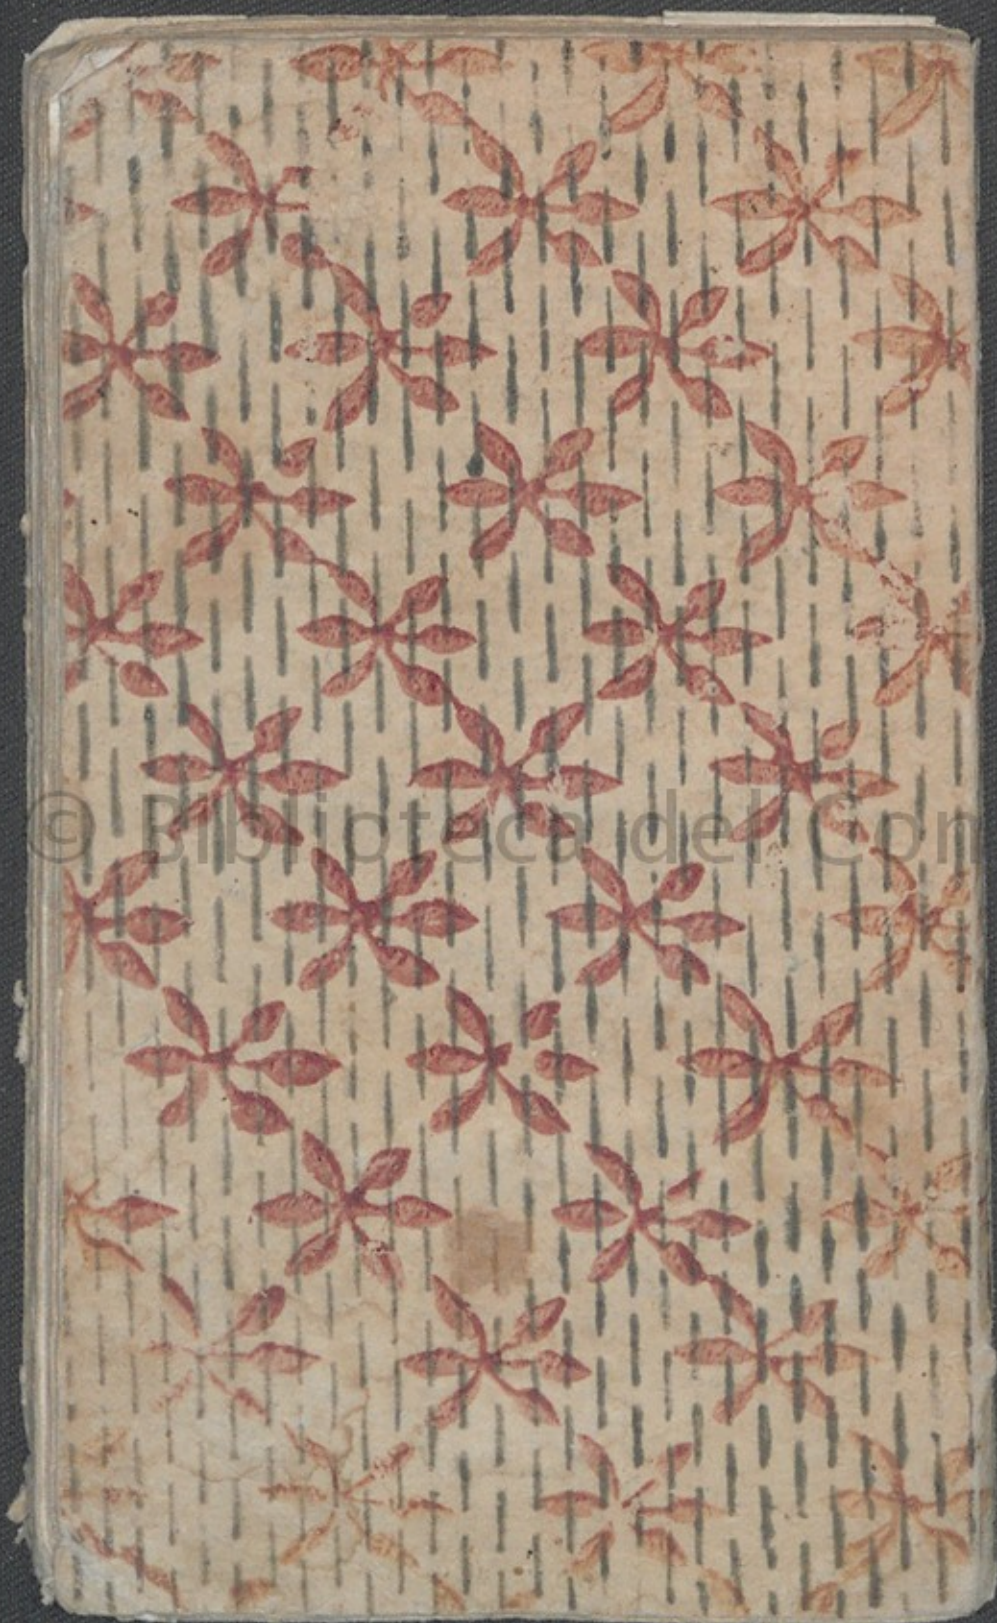 © Biblioteca del Con